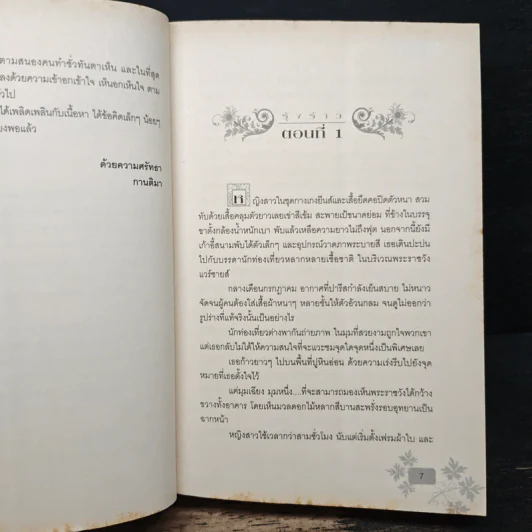 ตามสนองคนทำชั่วทันตาเห็น และในที่สุด
ลงด้วยความเข้าอกเข้าใจ เห็นอกเห็นใจ ตาม
วไป
ได้เพลิดเพลินกับเนื้อหา ได้ข้อคิดเล็กๆ น้อยๆ
ยงพอแล้ว
ด้วยความศรัทธา
กานติมา
รุ้งร้าว
ตอนที่ 1
หญิงสาวในชุดกางเกงยีนส์และเสื้อยืดคอปิดตัวหนา สวม
ทับด้วยเสื้อคลุมตัวยาวเลยเข่าสีเข้ม สะพายเป้ขนาดย่อม ที่ข้างในบรรจุ
ขาตั้งกล้องน้ำหนักเบา พับแล้วเหลือความยาวไม่ถึงฟุต นอกจากนี้ยังมี
เก้าอี้สนามพับได้ตัวเล็กๆ และอุปกรณ์วาดภาพระบายสี เธอเดินปะปน
ไปกับบรรดานักท่องเที่ยวหลากหลายเชื้อชาติ ในบริเวณพระราชวัง
แวร์ซายส์
กลางเดือนกรกฎาคม อากาศที่ปารีสกำลังเย็นสบาย ไม่หนาว
จัดจนผู้คนต้องใส่เสื้อผ้าหนาๆ หลายชั้นให้ตัวอ้วนกลม จนดูไม่ออกว่า
รูปร่างที่แท้จริงนั้นเป็นอย่างไร
นักท่องเที่ยวต่างพากันถ่ายภาพ ในมุมที่สวยงามถูกใจพวกเขา
แต่เธอกลับไม่ได้ให้ความสนใจที่จะแวะชมจุดใดจุดหนึ่งเป็นพิเศษเลย
เธอก้าวยาวๆ ไปบนพื้นที่ปูหินอ่อน ด้วยความเร่งรีบไปยังจุด
หมายที่เธอตั้งใจไว้
แค่มุมเฉียง มุมหนึ่ง....ที่จะสามารถมองเห็นพระราชวังได้กว้าง
ขวางทั้งอาคาร โดยเห็นมวลดอกไม้หลากสีบานสะพรั่งรอบอุทยานเป็น
ฉากหน้า
หญิงสาวใช้เวลากว่าสามชั่วโมง นับแต่เริ่มตั้งเฟรมผ้าใบ และ
7